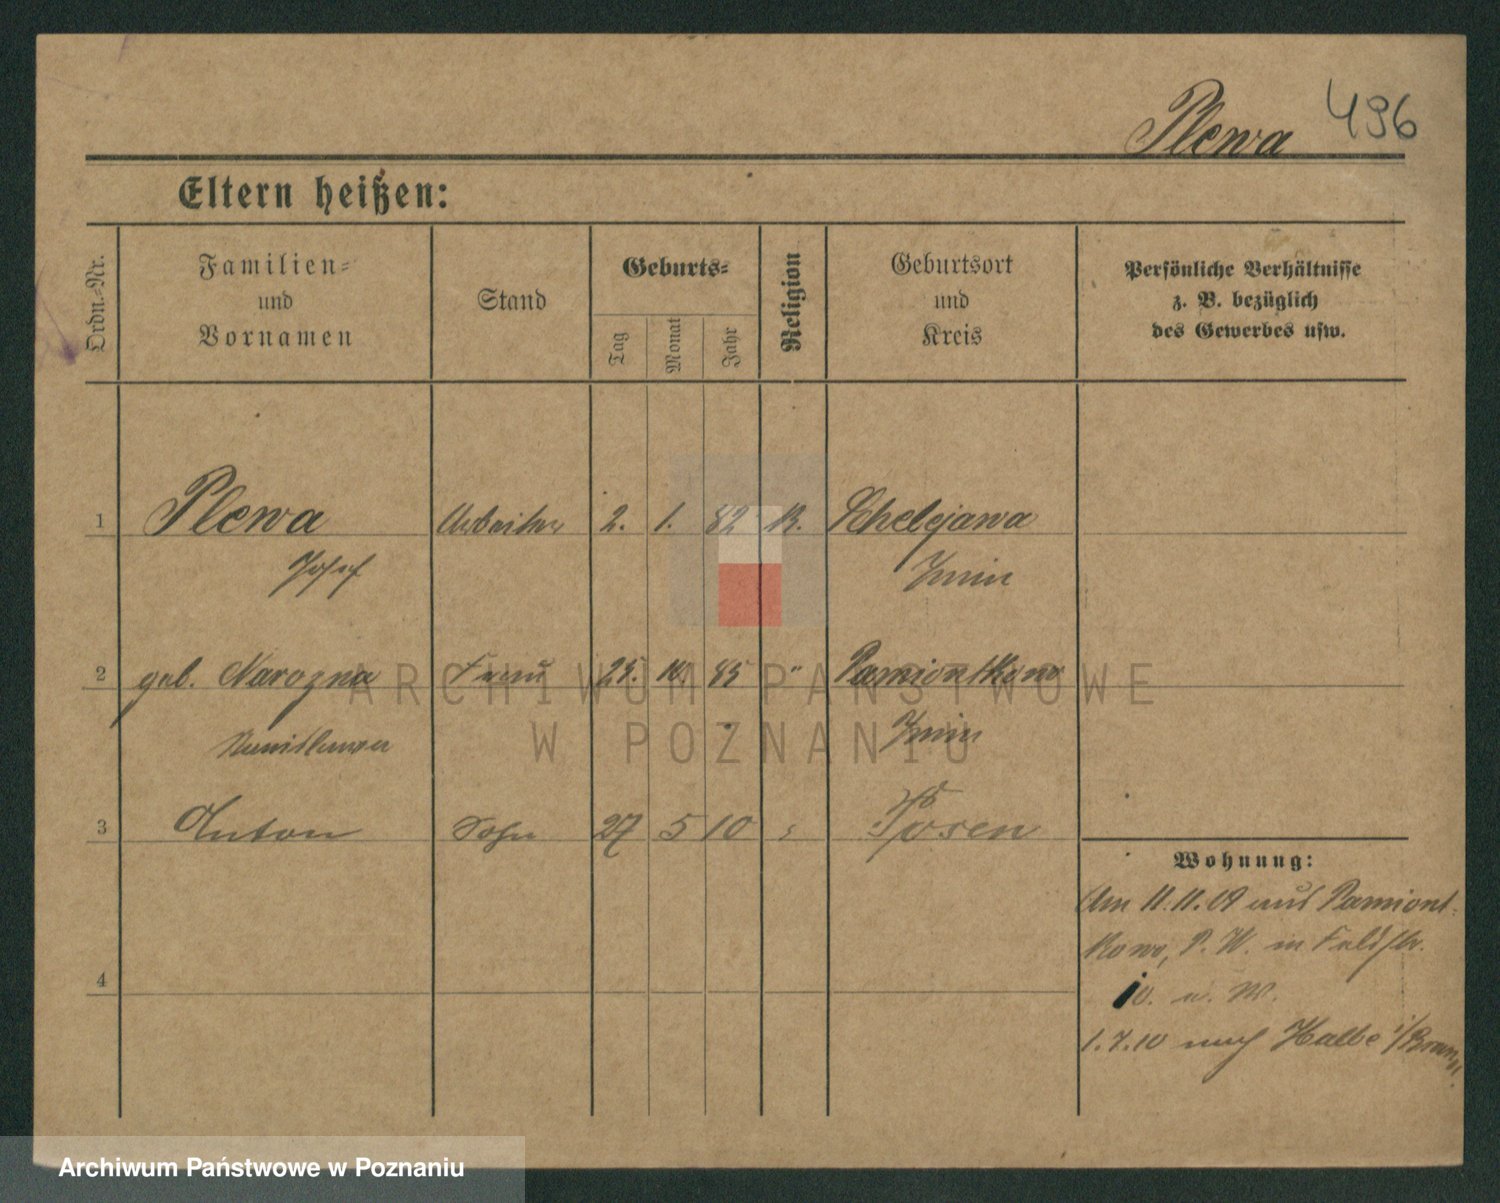 Plewa 496
Eltern heißen:
Ordn.-Nr.
Familien-
und
Vornamen
Stand
Geburts-
Tag
Monat
Jahr
Religion
Geburtsort
und
Kreis
Persönliche Verhältnisse
z. B. bezüglich
des Gewerbes usw.
1 Plewa Arbeiter 2. 1. 82
Josef Znin
2 geb. Narozna Frau 85 "
Znin
3 Anton Sohn 27 5 10 Posen
Wohnung:
Am 11.11.09 aus Pamiont-
kowo, P. W. in Feldstr.
4
10. u. W.
1.7.10 nach Halbe i/Brand.
ARCHIWUM PAŃSTWOWE
W POZNANIU
Archiwum Państwowe w Poznaniu